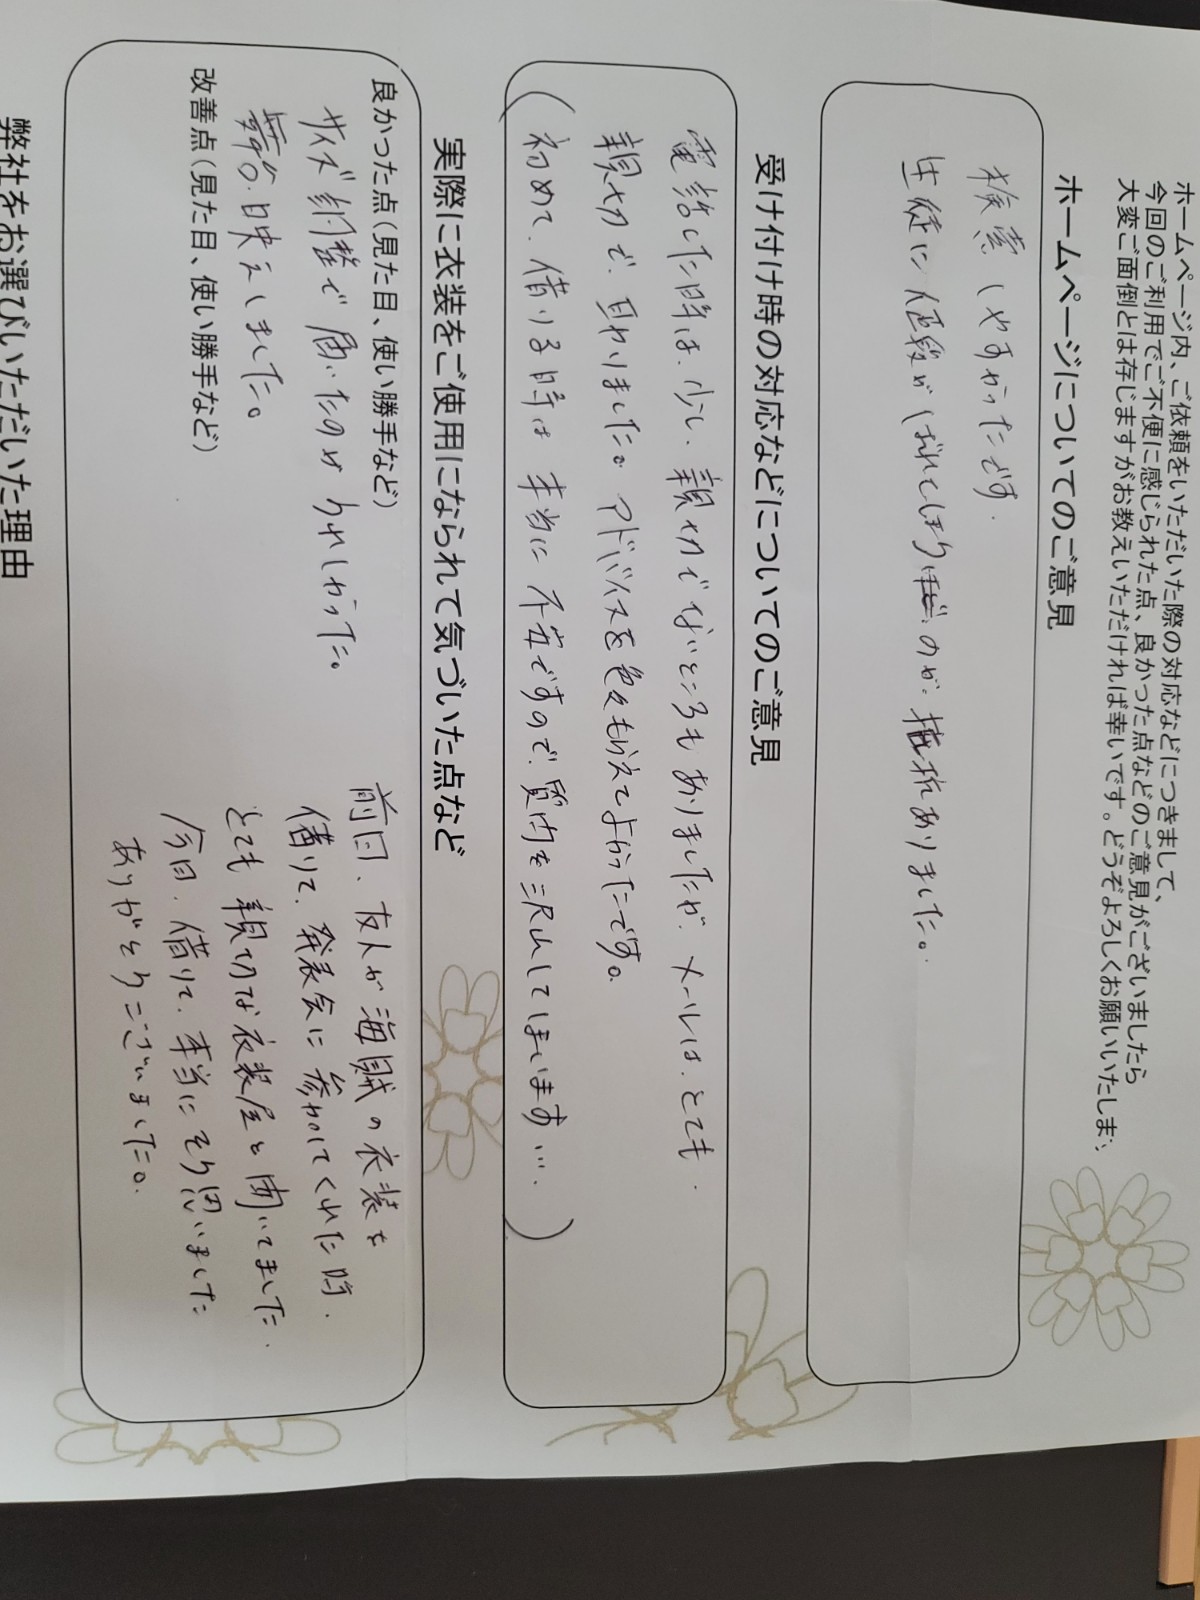 ホームページ内、ご依頼をいただいた際の対応などにつきまして、
今回のご利用でご不便に感じられた点、良かった点などのご意見がございましたら
大変ご面倒とは存じますがお教えいただければ幸いです。どうぞよろしくお願いいたしま
ホームページについてのご意見
検索しやすかったです.
生徒に値段がばれてしまうのが、抵抗ありました。
受け付け時の対応などについてのご意見
電話した時は、少し、親切でないところもありましたが、メールは、とても
親切で、助かりました。アドバイスを色々もらえてよかったです。
(初めて、借りる時は本当に不安ですので、質問を沢山してしまいます….)
実際に衣装をご使用になられて気づいた点など
良かった点(見た目、使い勝手など)
サイズ調整で届いたのはうれしかった。
舞台映えしました。
改善点(見た目、使い勝手など)
前回、友人が海賊の衣装を
借りて、発表会に参加してくれた時、
とても親切な衣装屋と聞いてました.
今回、借りて、本当にそう思いました
ありがとうございました。
弊社をお選びいただいた理由